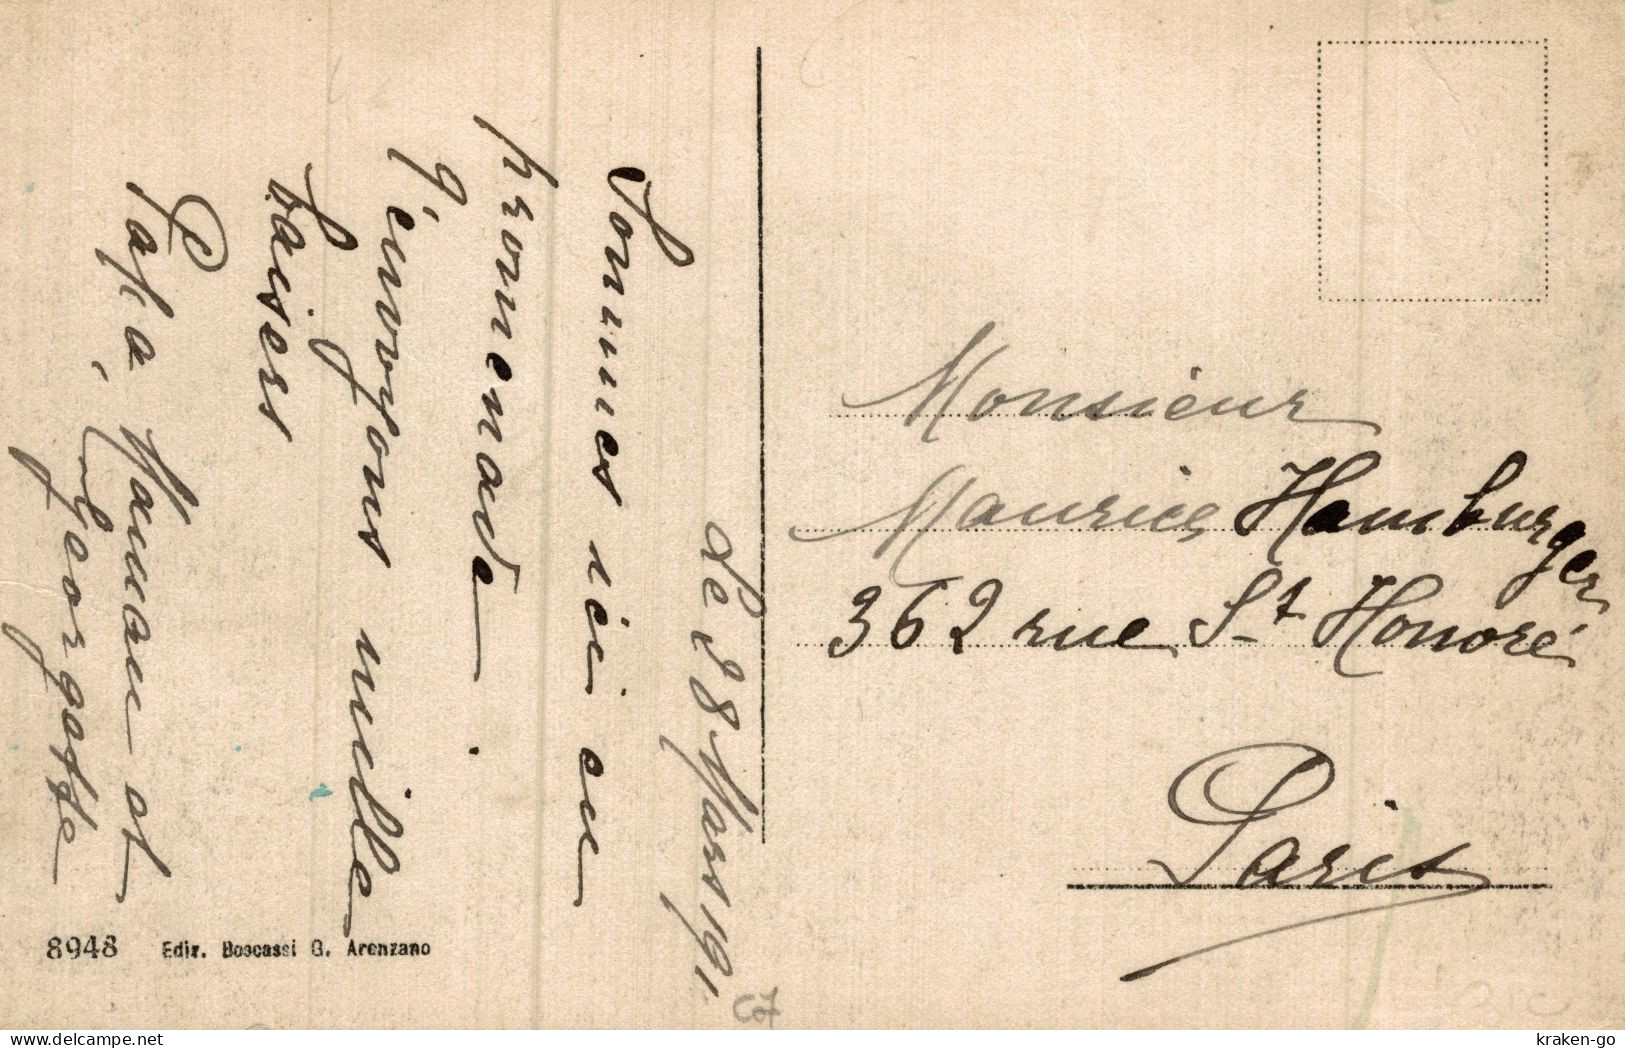 Le 28 Mars 191
Sommes ici en
promenade.
T'envoyons mille
baisers
Papa, Maman et
Georgette
Monsieur
Maurice Hamburger
362 rue St Honoré
Paris
8948 Ediz. Boscassi G. Arenzano
delcampe.net
kraken-go